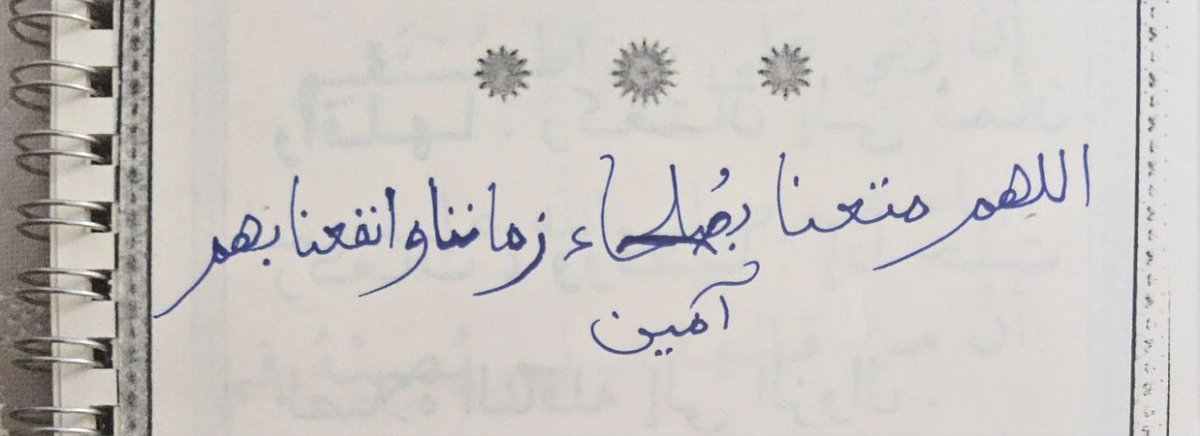 اللهم متعنا بصُلحاء زماننا وانفعنا بهم
آمين